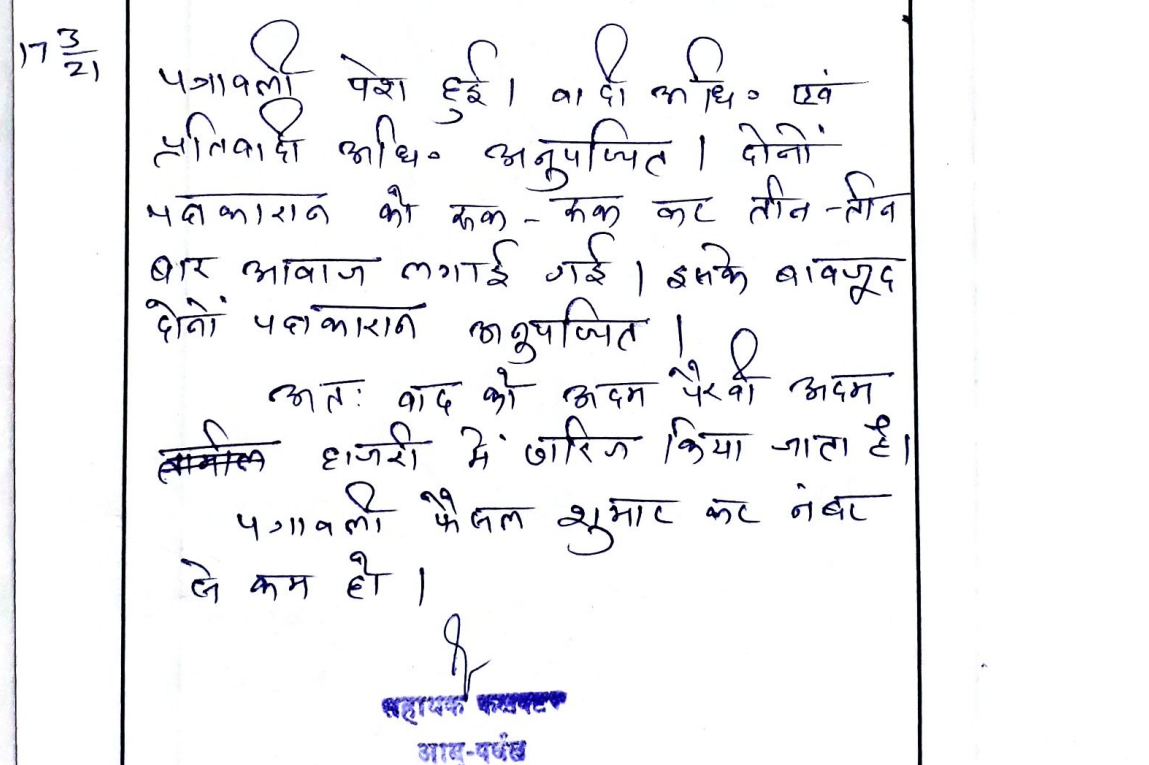 17 3/21
पत्रावली पेश हुई। वादी अधि० एवं
प्रतिवादी अधि० अनुपस्थित। दोनों
पक्षकारान को रूक - रूक कर तीन-तीन
बार आवाज लगाई गई। इसके बावजूद
दोनों पक्षकारान अनुपस्थित।
अतः वाद को अदम पैरवी अदम
हाजरी में खारिज किया जाता है।
पत्रावली फैसल शुमार कर नंबर
से कम हो।
सहायक कलक्टर
आबू-पर्वत